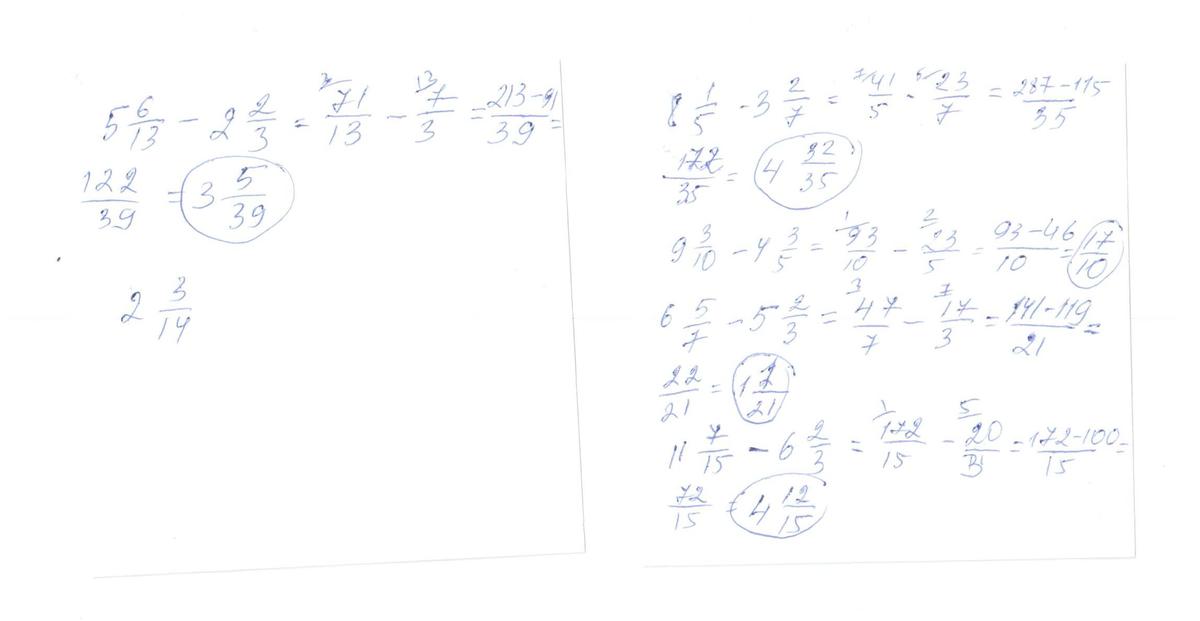 5 6/13 - 2 2/3 = 71/13 - 7/3 = 213-91/39 =
122/39 = 3 5/39
2 3/14
8 1/5 - 3 2/7 = 41/5 - 23/7 = 287-115/35
172/35 = 4 32/35
9 3/10 - 4 3/5 = 93/10 - 23/5 = 93-46/10 = 17/10
6 5/7 - 5 2/3 = 47/7 - 17/3 = 141-119/21 =
22/21 = 1 2/21
11 7/15 - 6 2/3 = 172/15 - 20/3 = 172-100/15 =
72/15 = 4 12/15